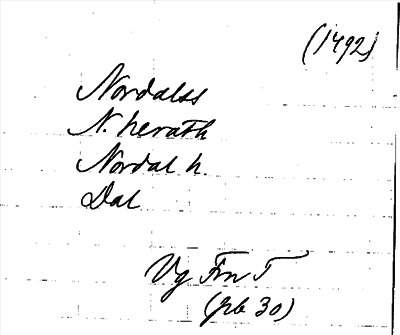 (1492)
Nordalss
N. herath
Nordal h.
Dal
Vg Frn T
(jb 30)